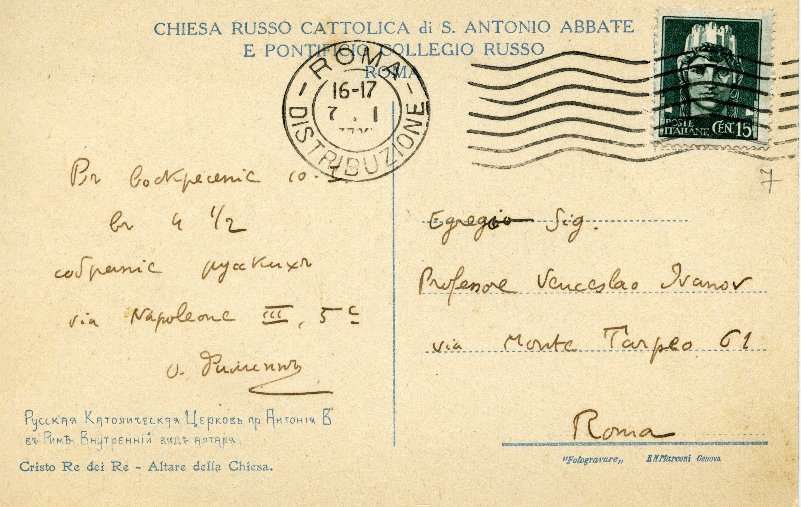 CHIESA RUSSO CATTOLICA di S. ANTONIO ABBATE
E PONTIFICIO COLLEGIO RUSSO
ROMA
ROMA
16-17
7 . 1
DISTRIBUZIONE
POSTE
ITALIANE CEN. 15
7
Въ воскресенiе 10.
въ 4 1/2
собранiе русскихъ
via Napoleone III, 5
о.
Egregio Sig.
Professore Venceslao Ivanov
via Monte Tarpeo 61
Roma
Русская Католическая Церковь пр Антонiя В
въ Римѣ. Внутреннiй видъ алтаря.
Cristo Re dei Re - Altare della Chiesa.
"Fotogravure„ Marconi Genova